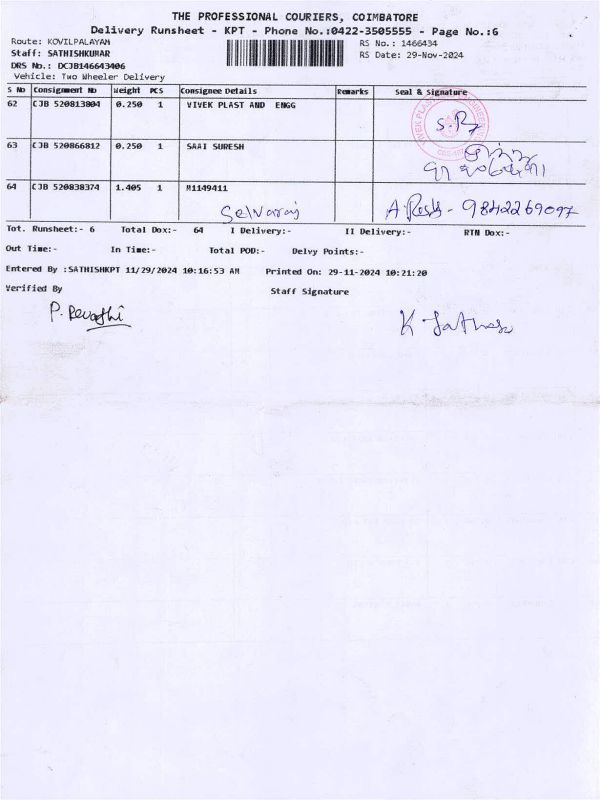 THE PROFESSIONAL COURIERS, COIMBATORE
Delivery Runsheet - KPT - Phone No.:0422-3505555 - Page No.:6
Route: KOVILPALAYAM
RS No.: 1466434
Staff: SATHISHKUMAR
RS Date: 29-Nov-2024
DRS No.: DCJB146643406
Vehicle: Two Wheeler Delivery
S No Consignment No Weight PCS Consignee Details Remarks Seal & Signature
62 CJB 520813804 0.250 1 VIVEK PLAST AND ENGG
63 CJB 520866812 0.250 1 SAAI SURESH
64 CJB 520838374 1.405 1 M1149411
Selvaraj
9842269097
Tot. Runsheet:- 6 Total Dox:- 64 I Delivery:- II Delivery:- RTN Dox:-
Out Time:- In Time:- Total POD:- Delvy Points:-
Entered By :SATHISHKPT 11/29/2024 10:16:53 AM Printed On: 29-11-2024 10:21:20
Verified By Staff Signature
P. Revathi